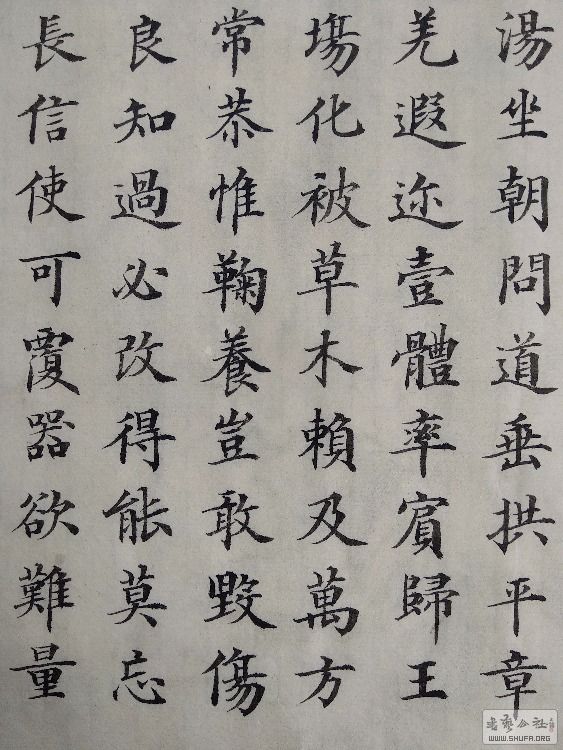 湯坐朝問道垂拱平章
羌遐迩壹體率賓歸王
場化被草木賴及萬方
常恭惟鞠養豈敢毀傷
良知過必改得能莫忘
長信使可覆器欲難量
书艺公社
WWW.SHUFA.ORG